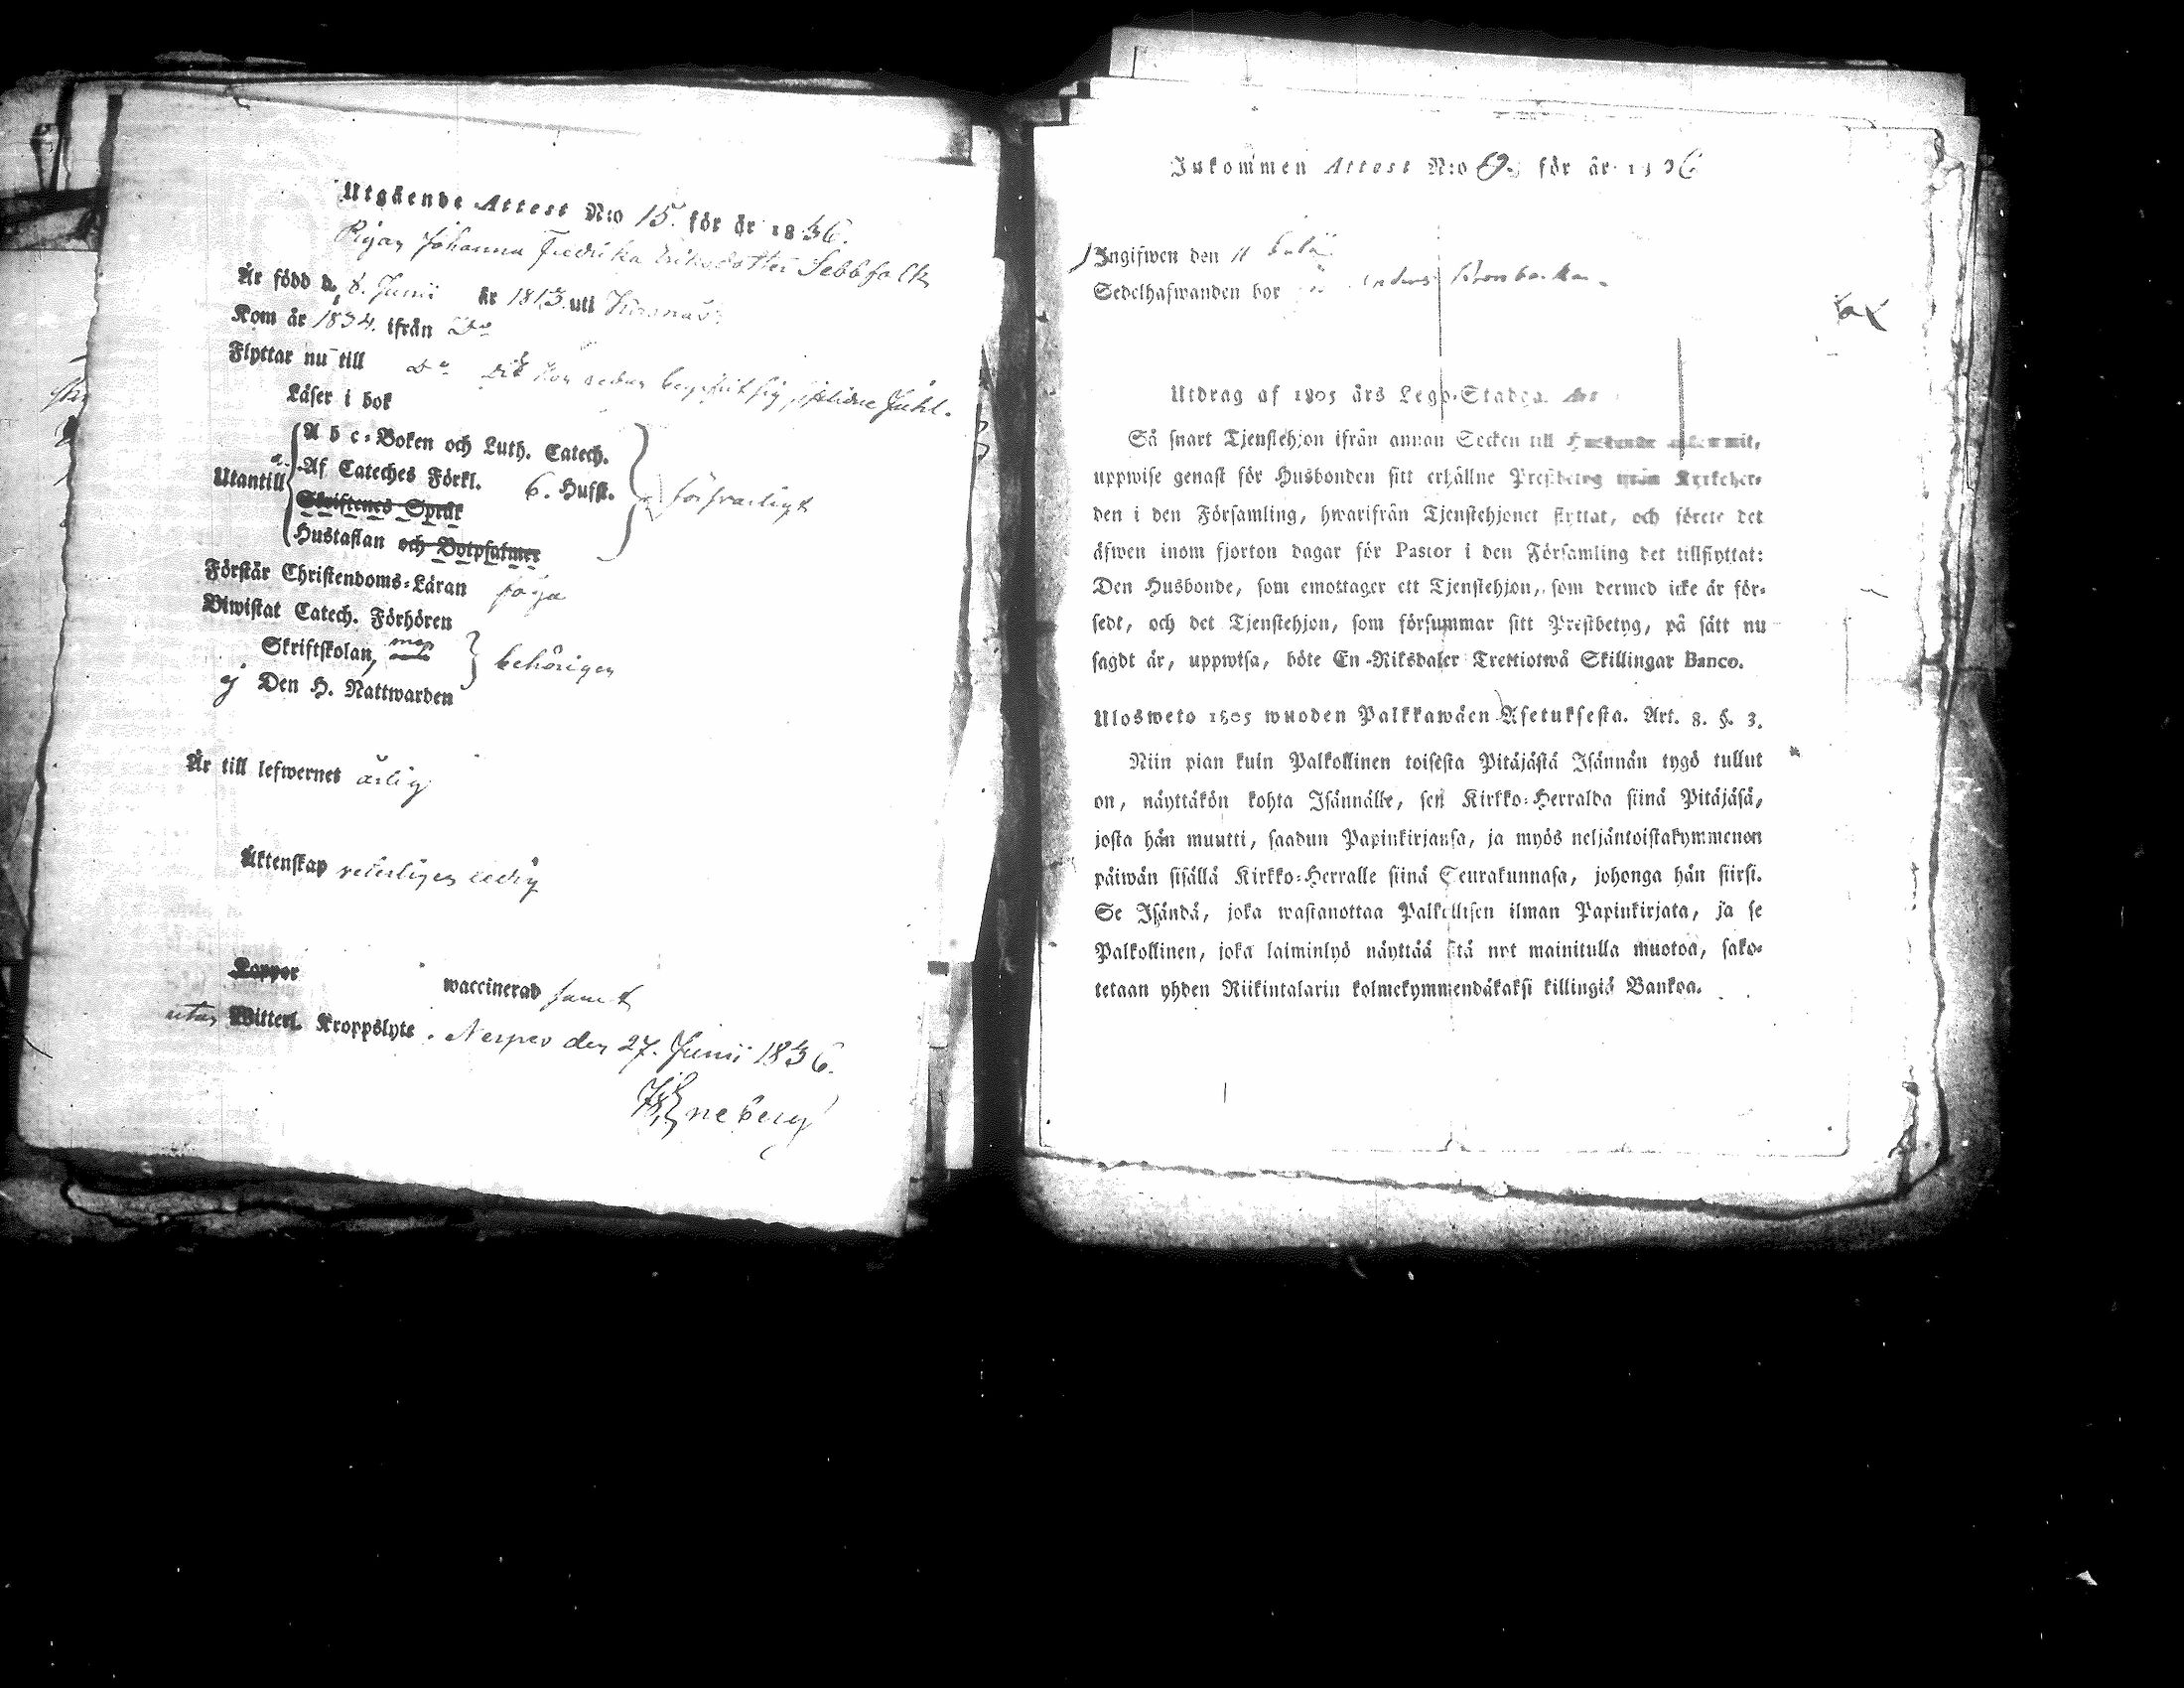 Utgående Attest N:o 15. för år 1836.
Pigan Johanna Fredrika Eriksdotter Sebbfolk
Är född d. 8. Junii år 1813. uti Korsnäs.
Kom år 1834. ifrån Do
Flyttar nu till Do dit hon redan begifvit sig, sistlidne Juhl.
Läser i bok
A b c-Boken och Luth. Catech.
Utantill Af Cateches Förkl. 6. Hufst. försvarligt
Skriftenes Språk
Hustaflan och Botpsalmer
Förstår Christendoms-Läran föga
Biwistat Catech. Förhören
Skriftskolan, men behörigen
ej Den H. Nattwarden
Är till lefwernet ärlig
Äktenskap veterligen ledig
Koppor waccinerad samt
utan Witterl. Kroppslyte. Nerpes den 27. Junii 1836.
Eneberg
Inkommen Attest N:o 9. för år 1836
Ingifwen den 11 Julii
Sedelhafwanden bor
Utdrag af 1805 års Lego-Stadga. Art
Så snart Tjenstehjon ifrån annan Socken till Husbonde
uppwise genast för Husbonden sitt erhållne Prestbetyg ifrån Kyrkoher-
den i den Församling, hwarifrån Tjenstehjonet flyttat, och förete det
äfwen inom fjorton dagar för Pastor i den Församling det tillflyttat:
Den Husbonde, som emottager ett Tjenstehjon, som dermed icke är för-
sedt, och det Tjenstehjon, som försummar sitt Prestbetyg, på sätt nu
sagdt är, uppwisa, böte En Riksdaler Trettiotwå Skillingar Banco.
Ulosweto 1805 wuoden Palkkawäen Asetuksesta. Art. 8. §. 3.
Niin pian kuin Palkollinen toisesta Pitäjästä Isännän tygö tullut
on, näyttäkön kohta Isännälle, sen Kirkko-Herralda siinä Pitäjäsä,
josta hän muutti, saadun Papinkirjansa, ja myös neljäntoistakymmenen
päiwän sisällä Kirkko-Herralle siinä Seurakunnasa, johonga hän siirsi.
Se Isändä, joka wastanottaa Palkollisen ilman Papinkirjata, ja se
Palkollinen, joka laiminlyö näyttää sitä nyt mainitulla muotoa, sako-
tetaan yhden Riikintalarin kolmekymmendäkaksi killingiä Bankoa.